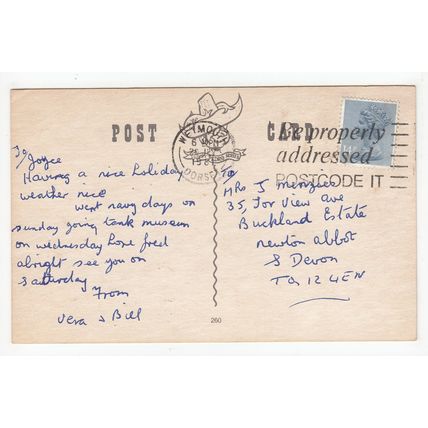 POST CARD
To Joyce
Having a nice holiday
weather nice
went navy days on
sunday going tank museum
on wednesday hope fred
alright see you on
saturday
From
Vera & Bill
WEYMOUTH
DORSET
Be properly
addressed
POSTCODE IT
To
Mrs J menzies
35, Tor View Ave
Buckland Estate
newton abbot
S Devon
TQ12 4EN
260